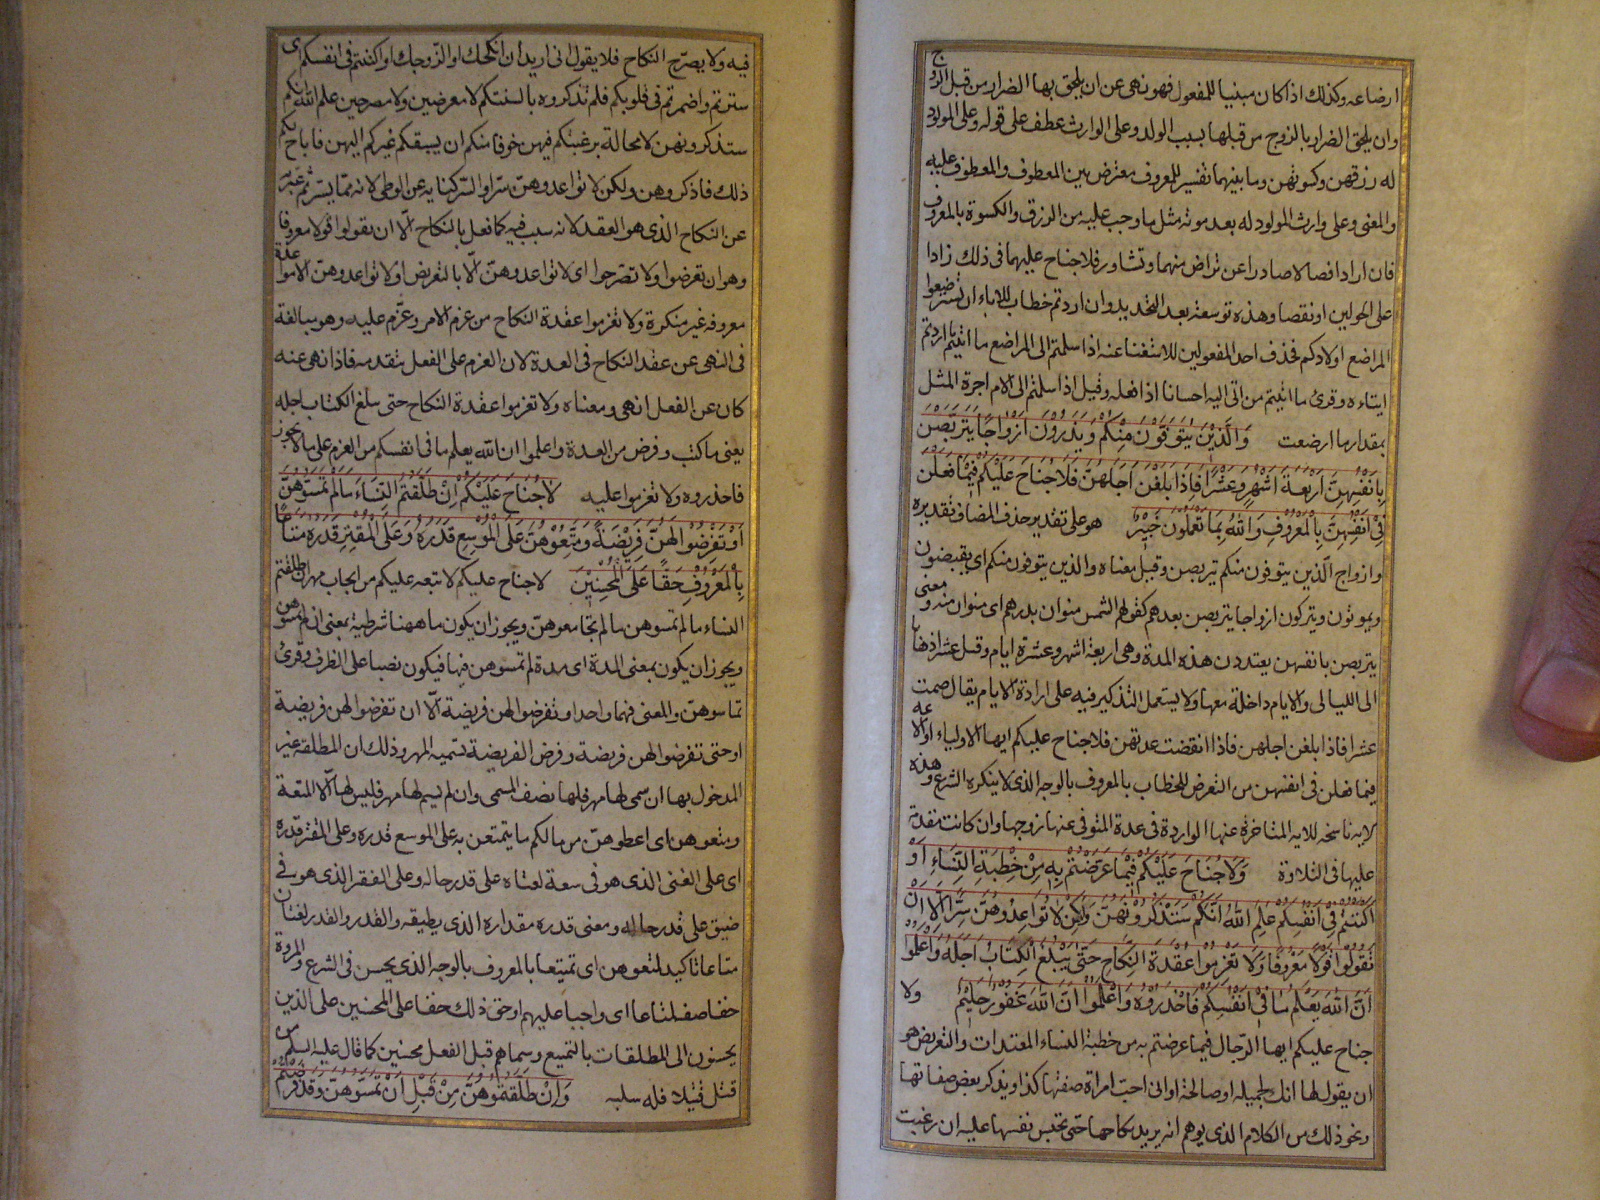 ارضاعه وكذلك اذا كان مبنيا للمفعول فهو نهى عن ان يلحق بها الضرار من قبل الزوج
وان يلحق الضرار بالزوج من قبلها بسبب الولد وعلى الوارث عطف على قوله وعلى المولود
له رزقهن وكسوتهن وما بينهما تفسير للمعروف معترض بين المعطوف والمعطوف عليه
والمعنى وعلى وارث المولود له بعد موته مثل ما وجب عليه من الرزق والكسوة بالمعروف
فان ارادا فصالا صادرا عن تراض منهما وتشاور فلا جناح عليهما فى ذلك زادا
على الحولين او نقصا وهذه توسعة بعد التحديد وان اردتم خطاب للاباء ان تسترضعوا
المراضع اولادكم فحذف احد المفعولين للاستغناء عنه اذا سلمتم الى المراضع ما اتيتم اردتم
ايتاءه وقرئ ما اتيتم من اتى اليه احسانا اذا فعله وقيل اذا سلمتم الى الام اجرة المثل
بمقدار ما ارضعت وَالَّذِيْنَ يُتَوَفَّوْنَ مِنْكُمْ وَيَذَرُونَ اَزْوَاجًا يَتَرَبَّصْنَ
بِاَنْفُسِهِنَّ اَرْبَعَةَ اَشْهُرٍ وَعَشْرًا فَاِذَا بَلَغْنَ اَجَلَهُنَّ فَلَا جُنَاحَ عَلَيْكُمْ فِيْمَا فَعَلْنَ
فِيْ اَنْفُسِهِنَّ بِالْمَعْرُوْفِ وَاللّٰهُ بِمَا تَعْمَلُوْنَ خَبِيْرٌ هو على تقدير حذف المضاف تقديره
وازواج الذين يتوفون منكم يتربصن وقيل معناه والذين يتوفون منكم اى يقبضون
ويموتون ويتركون ازواجا يتربصن بعدهم كقولهم السمن منوان بدرهم اى منوان منه ومعنى
يتربصن بانفسهن يعتددن هذه المدة وهى اربعة اشهر وعشرة ايام وقيل عشرا ذهابا
الى الليالى والايام داخلة معها ولا يستعمل التذكير فيه على ارادة الايام يقال صمت
عشرا فاذا بلغن اجلهن فاذا انقضت عدتهن فلا جناح عليكم ايها الاولياء او الائمة
فيما فعلن فى انفسهن من التعرض للخطاب بالمعروف بالوجه الذى لا ينكره الشرع وهذه
الايه ناسخه للايه المتاخرة عنها الواردة فى عدة المتوفى عنها زوجها وان كانت متقدمة
عليها فى التلاوة وَلَا جُنَاحَ عَلَيْكُمْ فِيْمَا عَرَّضْتُمْ بِهِ مِنْ خِطْبَةِ النِّسَاءِ اَوْ
اَكْنَنْتُمْ فِيْ اَنْفُسِكُمْ عَلِمَ اللّٰهُ اَنَّكُمْ سَتَذْكُرُوْنَهُنَّ وَلٰكِنْ لَا تُوَاعِدُوْهُنَّ سِرًّا اِلَّا اَنْ
تَقُوْلُوْا قَوْلًا مَعْرُوْفًا وَلَا تَعْزِمُوا عُقْدَةَ النِّكَاحِ حَتَّى يَبْلُغَ الْكِتَابُ اَجَلَهُ وَاعْلَمُوْا
اَنَّ اللّٰهَ يَعْلَمُ مَا فِيْ اَنْفُسِكُمْ فَاحْذَرُوْهُ وَاعْلَمُوْا اَنَّ اللّٰهَ غَفُوْرٌ حَلِيْمٌ ولا
جناح عليكم ايها الرجال فيما عرضتم به من خطبة النساء المعتدات والتعريض هو
ان يقول لها انك لجميلة او صالحة او انى احب امراة صفتها كذا ويذكر بعض صفاتها
ونحو ذلك من الكلام الذى يوهم انه يريد نكاحها حتى تحبس نفسها عليه ان رغبت
فيه ولا يصرح النكاح فلا يقول انى اريد ان انكحك او اتزوجك او اكننتم فى انفسكم اى
سترتم واضمرتم فى قلوبكم فلم تذكروه بالسنتكم لا معرضين ولا مصرحين علم الله انكم
ستذكرونهن لا محالة برغبتكم فيهن خوفا منكم ان يسبقكم غيركم اليهن فاباح لكم
ذلك فاذكروهن ولكن لا تواعدوهن سرا والسر كنايه عن الوطى لانه مما يسر ثم عبر به
عن النكاح الذى هو العقد لانه سبب فيه كما فعل بالنكاح الا ان تقولوا قولا معروفا
وهو ان تعرضوا ولا تصرحوا اى لا تواعدوهن الا بالتعريض او لا تواعدوهن الا مواعدة
معروفه غير منكرة ولا تعزموا عقدة النكاح من عزم الامر وعزم عليه وهو مبالغة
فى النهى عن عقد النكاح فى العدة لان العزم على الفعل يتقدمه فاذا نهى عنه
كان عن الفعل انهى ومعناه ولا تعزموا عقدة النكاح حتى يبلغ الكتاب اجله
يعنى ما كتب وفرض من العدة واعلموا ان الله يعلم ما فى انفسكم من العزم على ما لا يجوز
فاحذروه ولا تعزموا عليه لَا جُنَاحَ عَلَيْكُمْ اِنْ طَلَّقْتُمُ النِّسَاءَ مَا لَمْ تَمَسُّوْهُنَّ
اَوْ تَفْرِضُوْا لَهُنَّ فَرِيْضَةً وَمَتِّعُوْهُنَّ عَلَى الْمُوْسِعِ قَدَرُهُ وَعَلَى الْمُقْتِرِ قَدَرُهُ مَتَاعًا
بِالْمَعْرُوْفِ حَقًّا عَلَى الْمُحْسِنِيْنَ لا جناح عليكم لا تبعه عليكم من ايجاب مهر ان طلقتم
النساء ما لم تمسوهن ما لم تجامعوهن ويجوز ان يكون ما ههنا شرطية بمعنى ان لم تمسوهن
ويجوز ان يكون بمعنى المدة اى مدة لم تمسوهن فيها فيكون نصبا على الظرف وقرئ
تماسوهن والمعنى فيهما واحد او تفرضوا لهن فريضة الا ان تفرضوا لهن فريضة
او حتى تفرضوا لهن فريضة وفرض الفريضة تسميه المهر وذلك ان المطلقه غير
المدخول بها ان سمى لها مهر فلها نصف المسمى وان لم يسم لها مهر فليس لها الا المتعة
ومتعوهن اى اعطوهن من مالكم ما يتمتعن به على الموسع قدره وعلى المقتر قدره
اى على الغنى الذى هو فى سعة لغناه على قدر حاله وعلى الفقير الذى هو فى
ضيق على قدر حاله ومعنى قدره مقداره الذى يطيقه والقدر والقدر لغتان
متاعا تاكيد لمتعوهن اى تمتيعا بالمعروف بالوجه الذى يحسن فى الشرع والمروة
حقا صفة لمتاعا اى واجبا عليهم او حق ذلك حقا على المحسنين على الذين
يحسنون الى المطلقات بالتمتيع وسماهم قبل الفعل محسنين كما قال عليه السلم من
قتل قتيلا فله سلبه وَاِنْ طَلَّقْتُمُوْهُنَّ مِنْ قَبْلِ اَنْ تَمَسُّوْهُنَّ وَقَدْ فَرَضْتُمْ